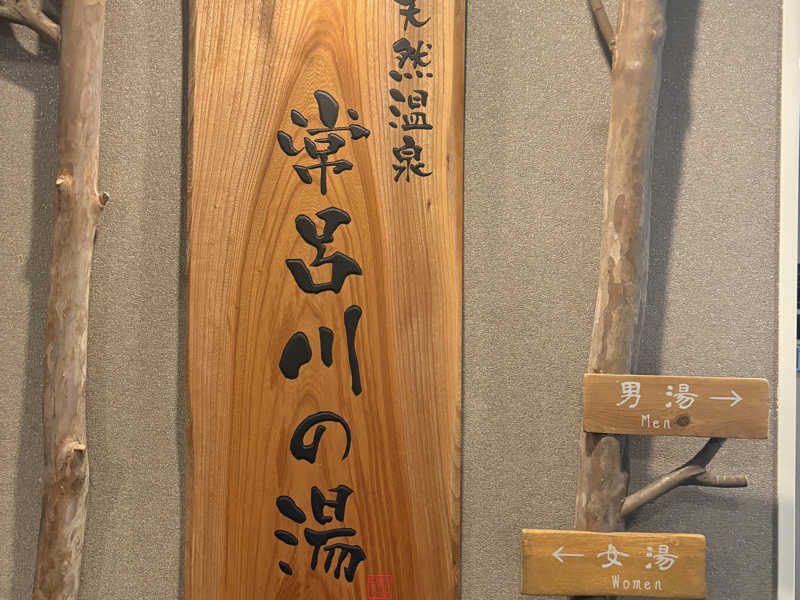 天然温泉
常呂川の湯
男湯→
Men
←女湯
Women